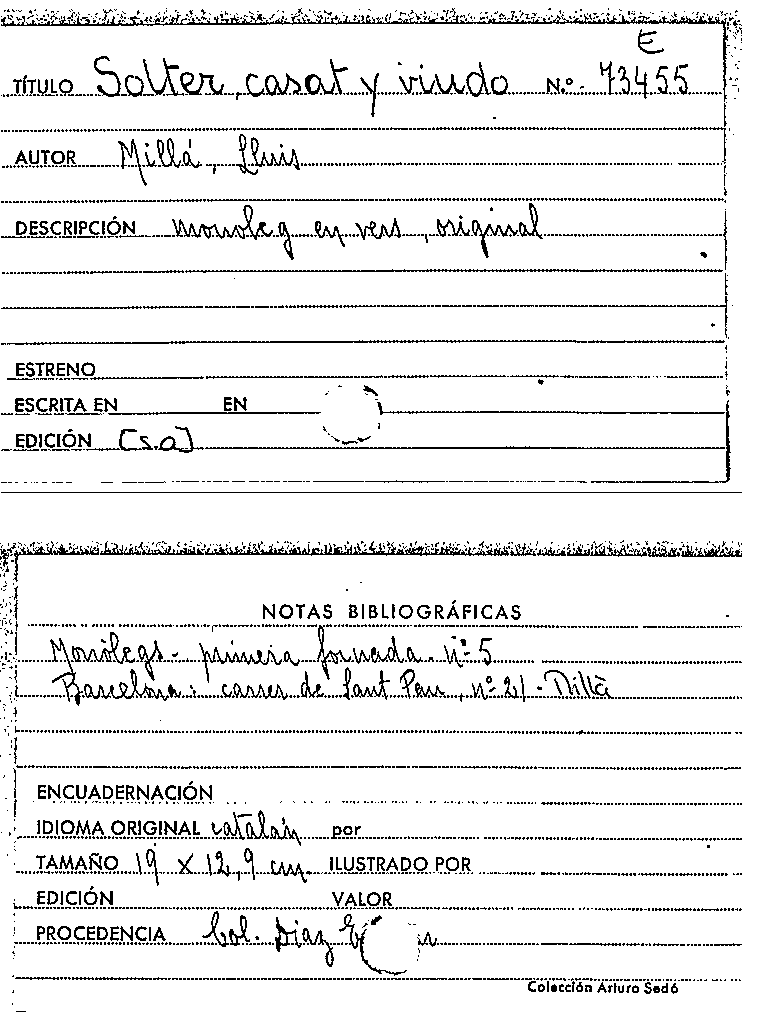 E
TÍTULO Solter, casat y viudo N.º 73455
AUTOR Millá, Lluis
DESCRIPCIÓN monoleg en vers, original
ESTRENO
ESCRITA EN EN
EDICIÓN [s.a]
NOTAS BIBLIOGRÁFICAS
Monòlegs - primera fornada. nº 5
Barcelona: carrer de Sant Pau, nº 21 - Millà
ENCUADERNACIÓN
IDIOMA ORIGINAL catalán por
TAMAÑO 19 x 12,9 cm. ILUSTRADO POR
EDICIÓN VALOR
PROCEDENCIA Col. Diaz
Colección Arturo Sedó